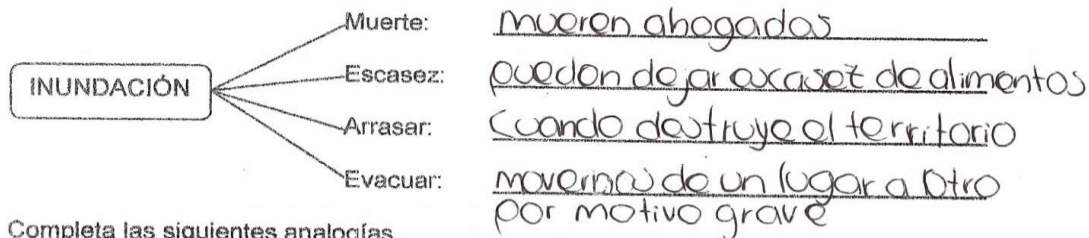 Muerte: mueren ahogados
INUNDACIÓN
Escasez: pueden dejar excaset de alimentos
Arrasar: Cuando destruye el territorio
Evacuar: movernos de un lugar a otro
por motivo grave
Completa las siguientes analogías